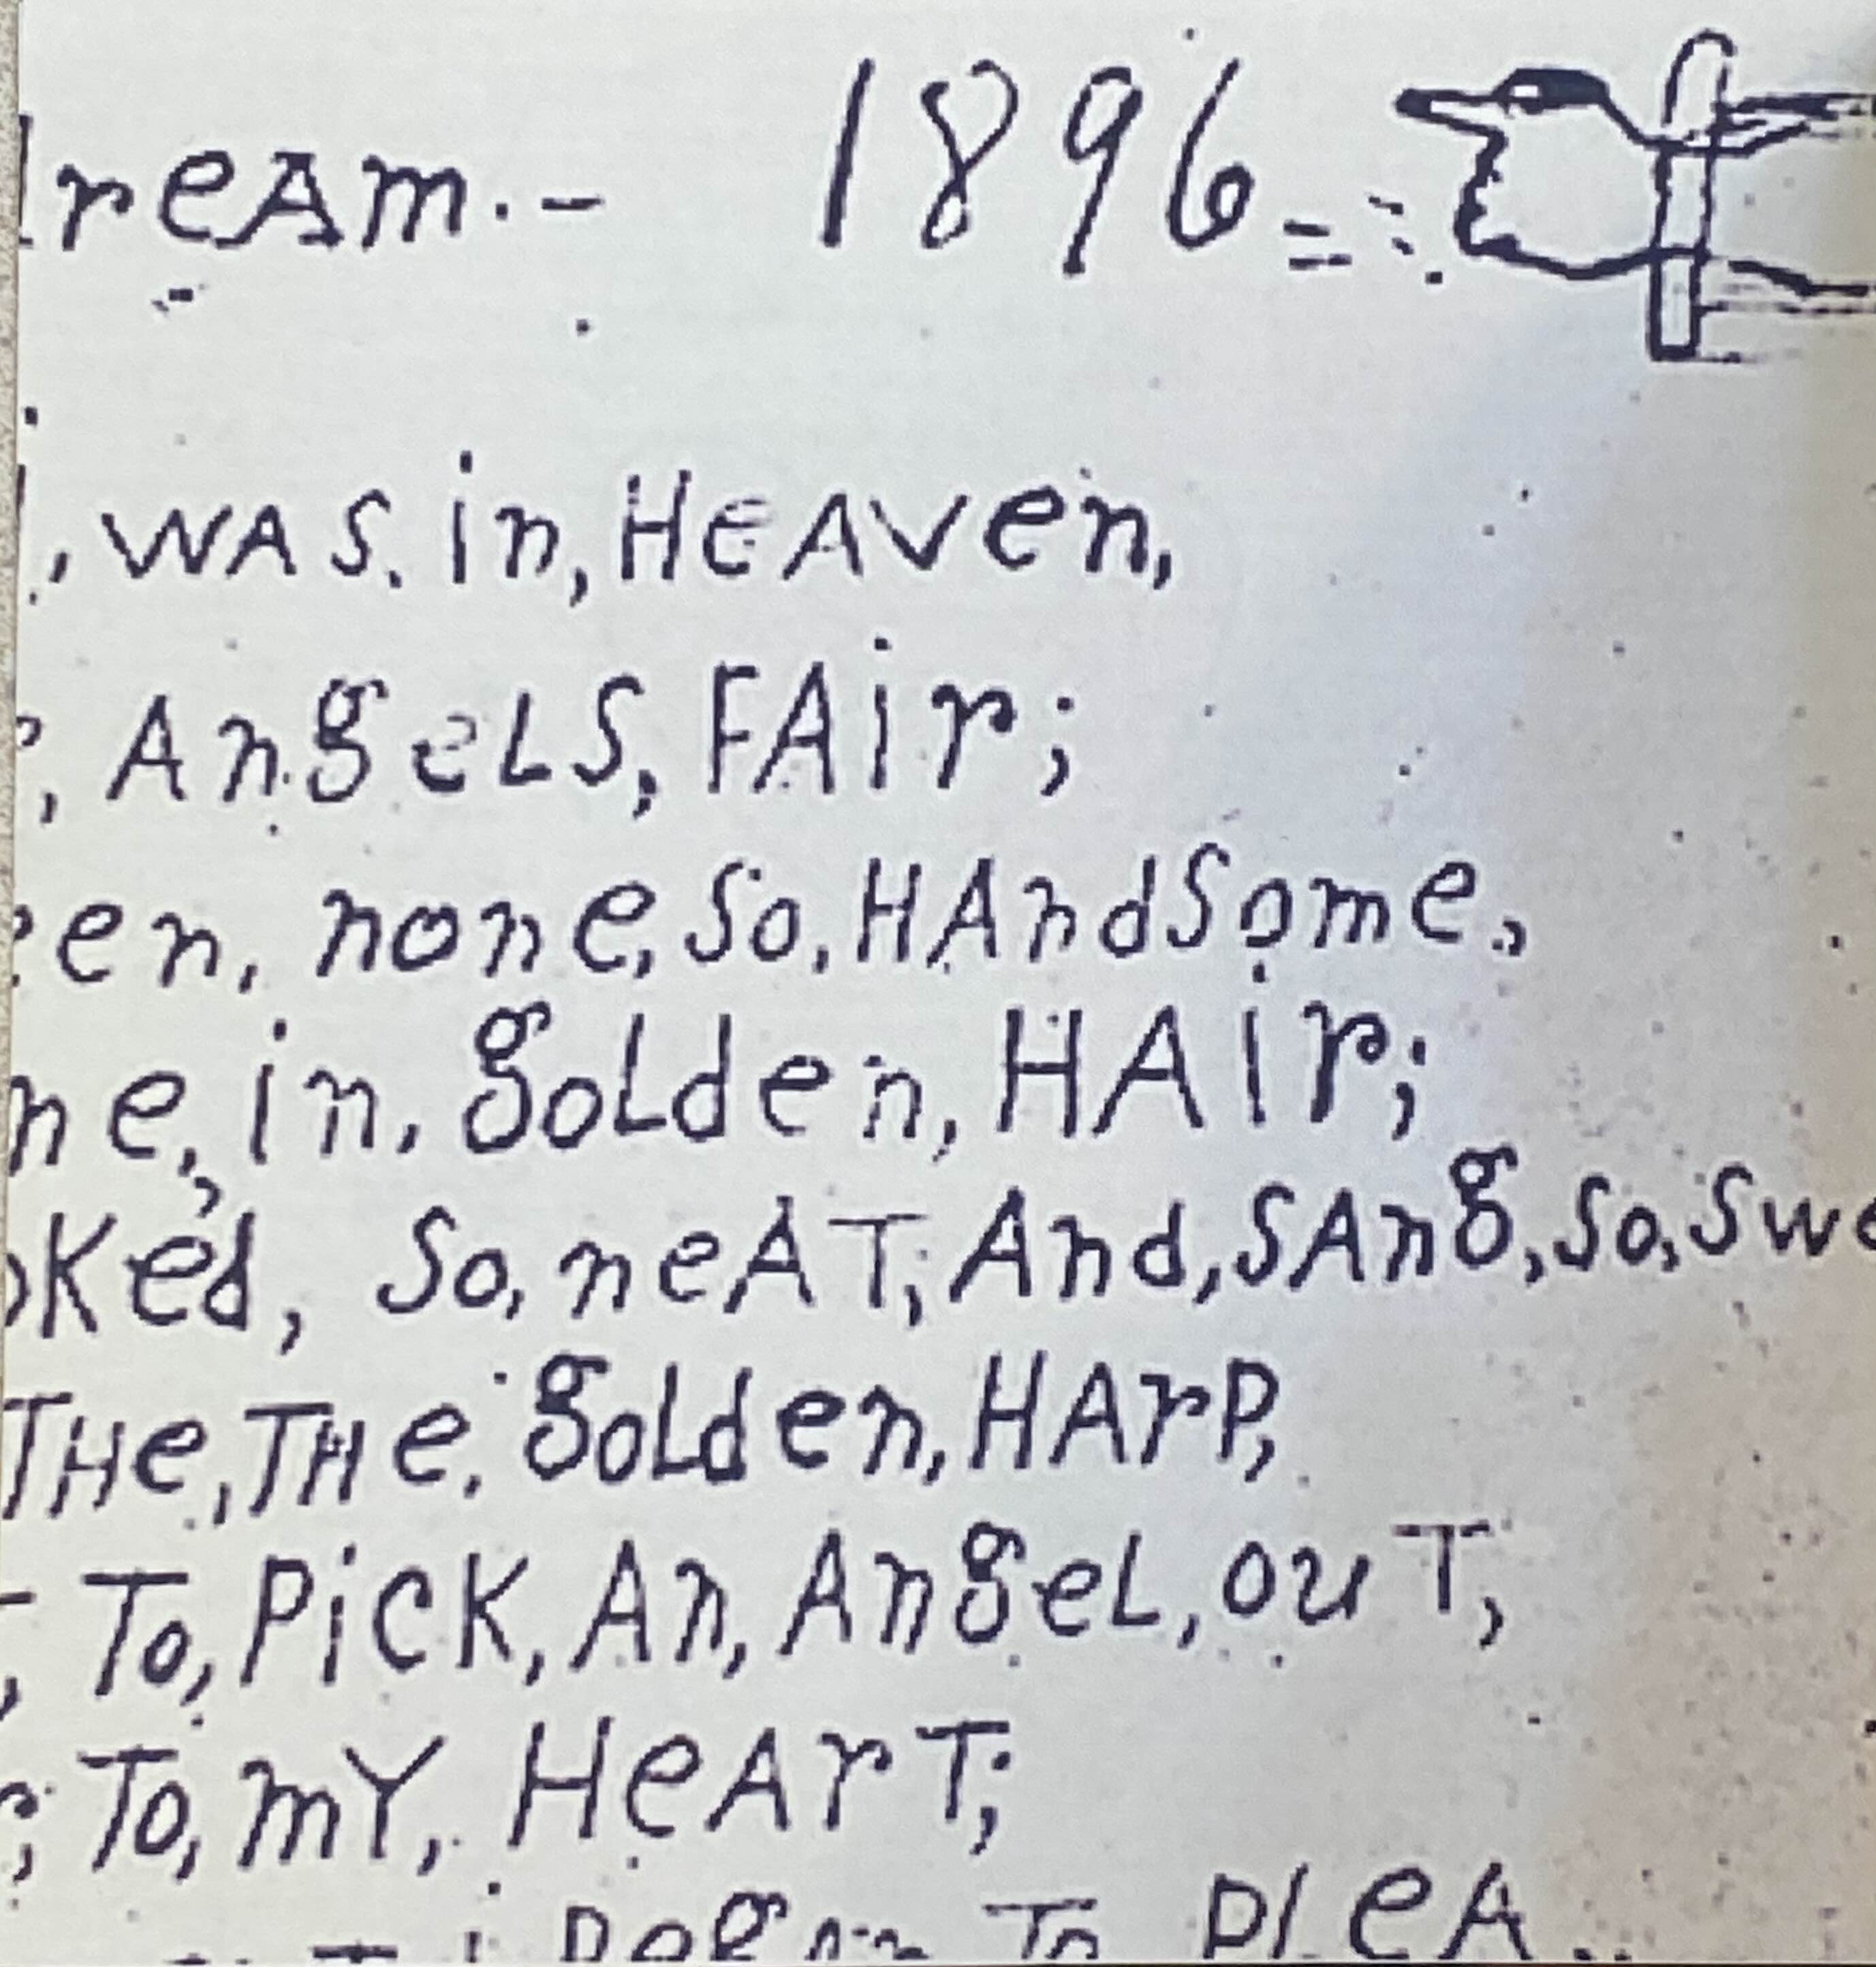 reAm.- 1896
, WAS. in, HeAven,
, AngeLS, FAir;
en, none, So, HAndSome,
ne, in, goLden, HAir;
Ked, So, neAT, And, SAng, So, Swe
THe, THe. goLden, HArP,
To, PicK, An, AngeL, ouT,
To, mY, HeArT;
i Began To PLeA